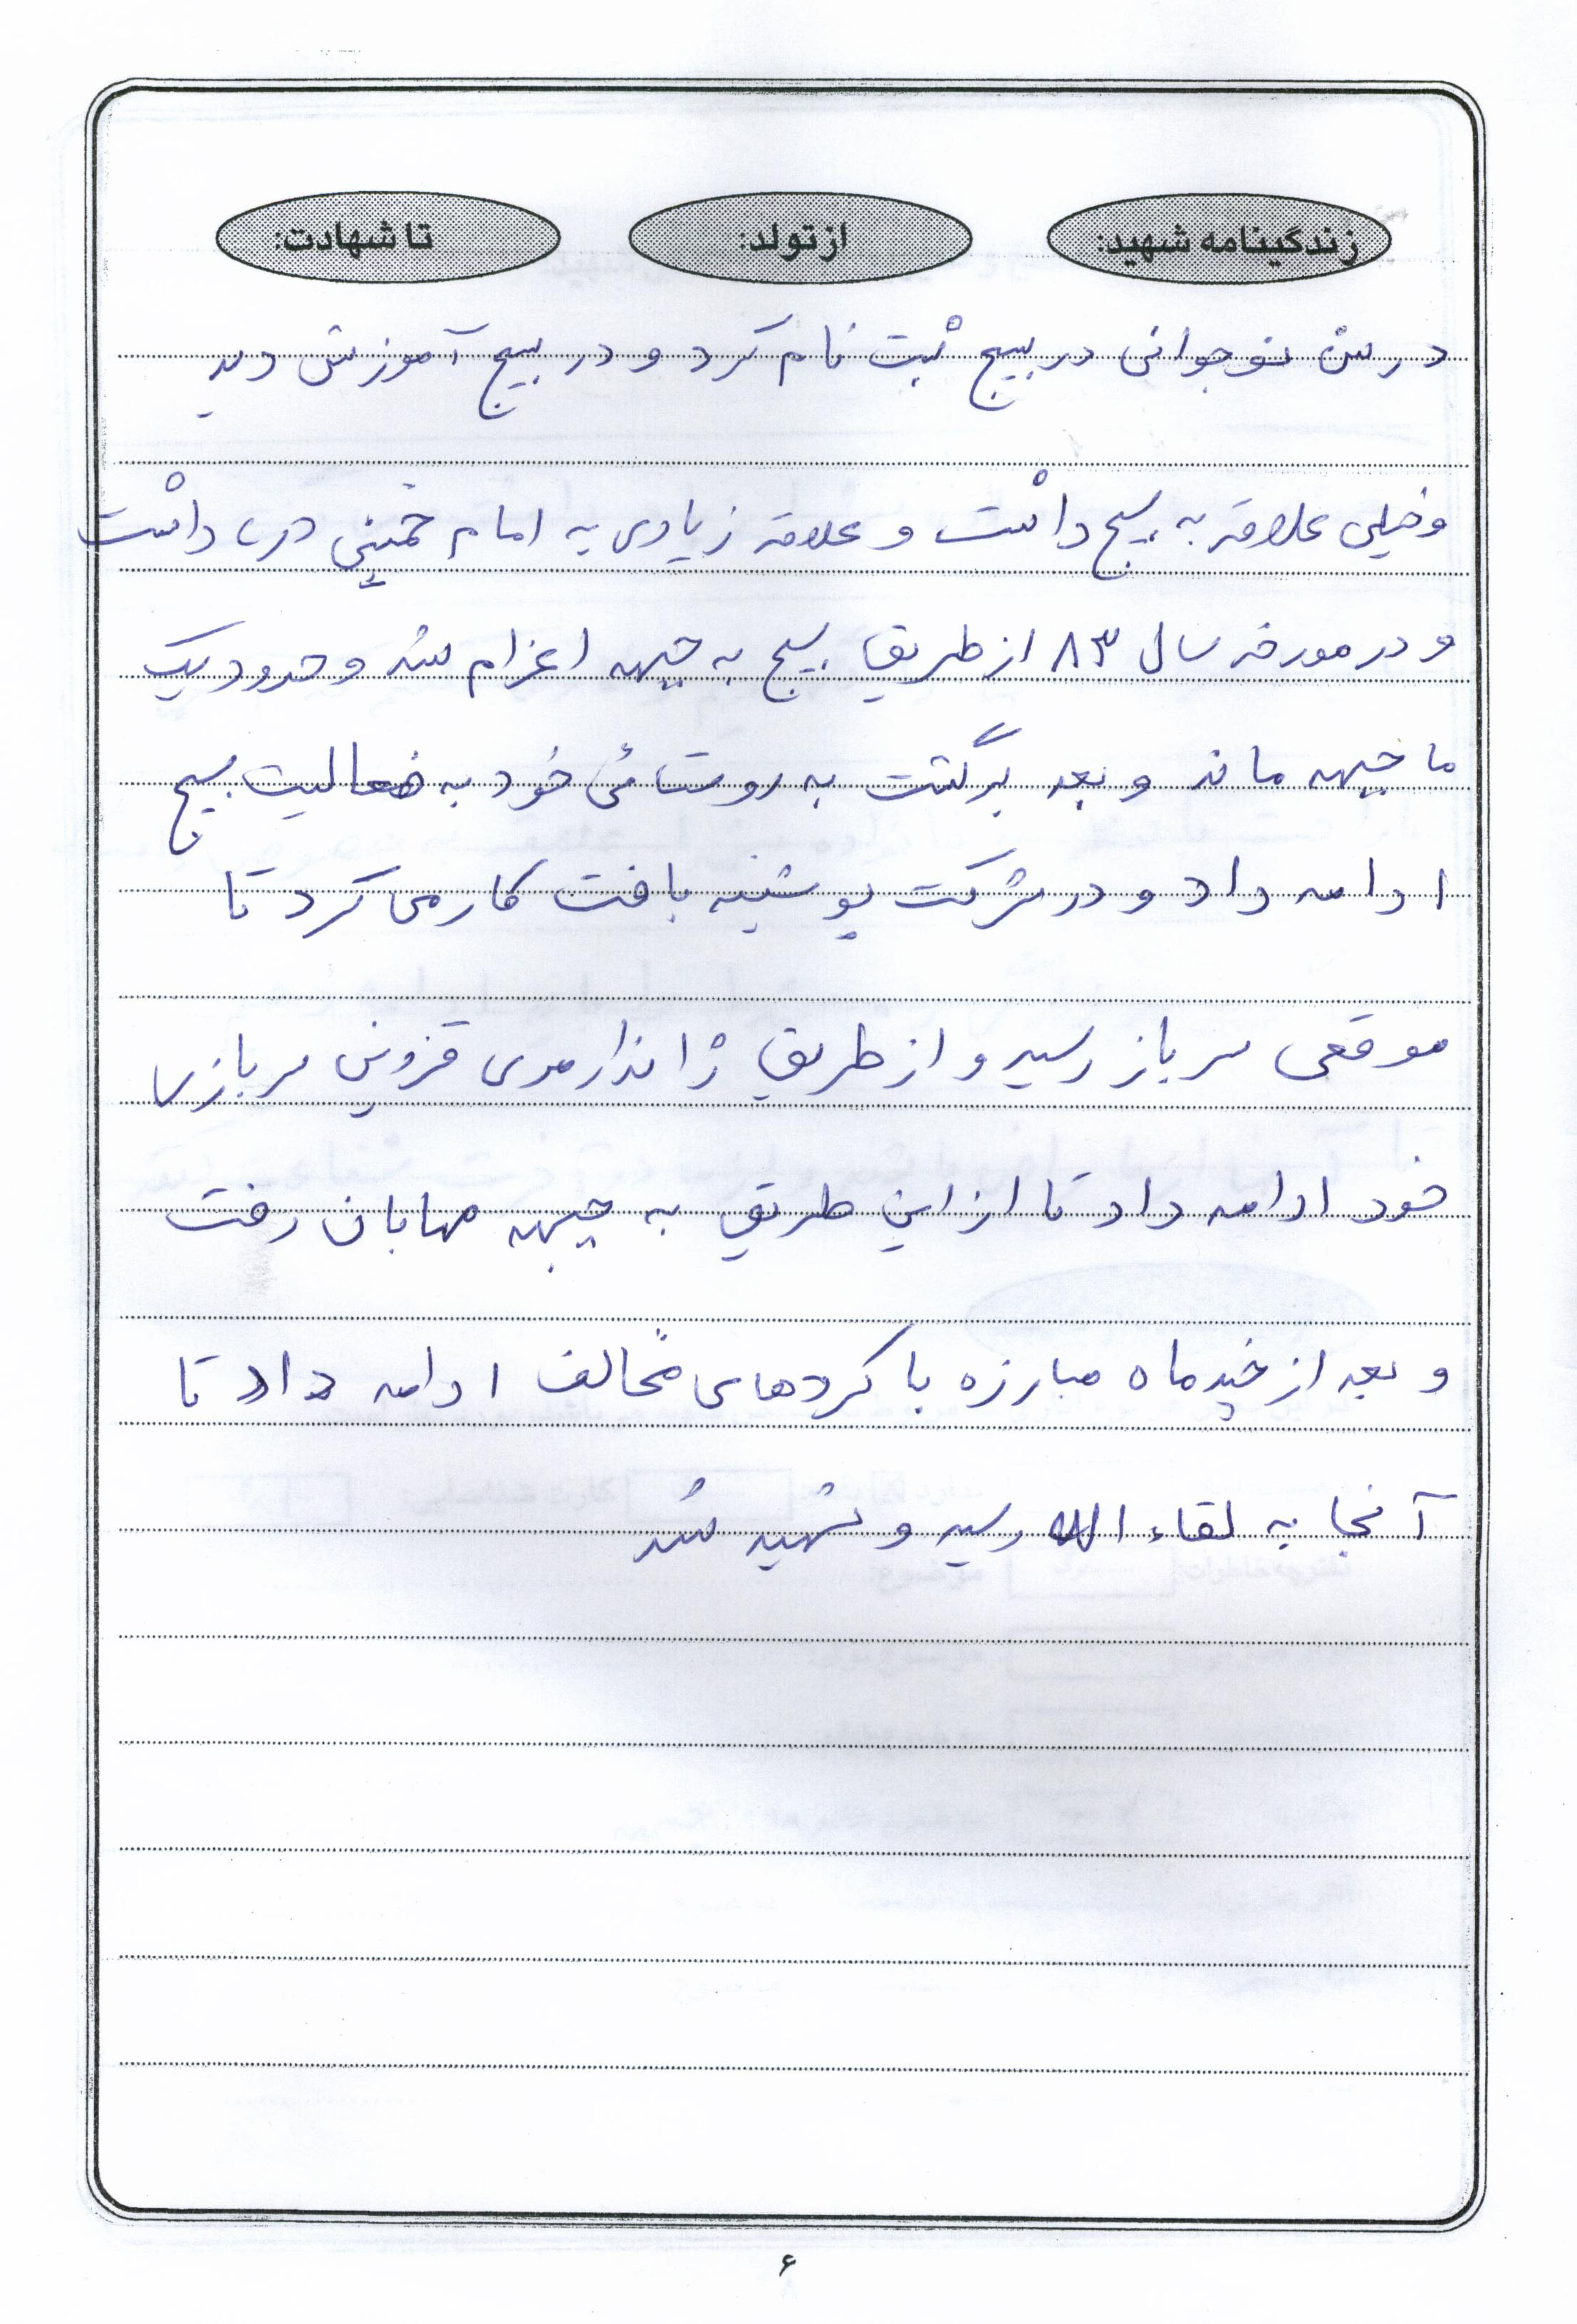 زندگینامه شهید: از تولد: تا شهادت:
در سن نوجوانی در بسیج ثبت نام کرد و در بسیج آموزش دید
و خیلی علاقه به بسیج داشت و علاقه زیادی به امام خمینی داشت
و در مورخه سال ۸۳ از طریق بسیج به جبهه اعزام شد و حدود یک
ما جبهه ماند و بعد برگشت به روستائی خود به فعالیت بسیج
ادامه داد و در شرکت پوشینه بافت کار می کرد تا
موقعی سرباز رسید و از طریق ژاندارمری قزوین سربازی
خود ادامه داد تا از این طریق به جبهه مهاباد رفت
و بعد از چند ماه مبارزه با کردهای مخالف ادامه داد تا
آنجا به لقاء الله رسید و شهید شد
۶